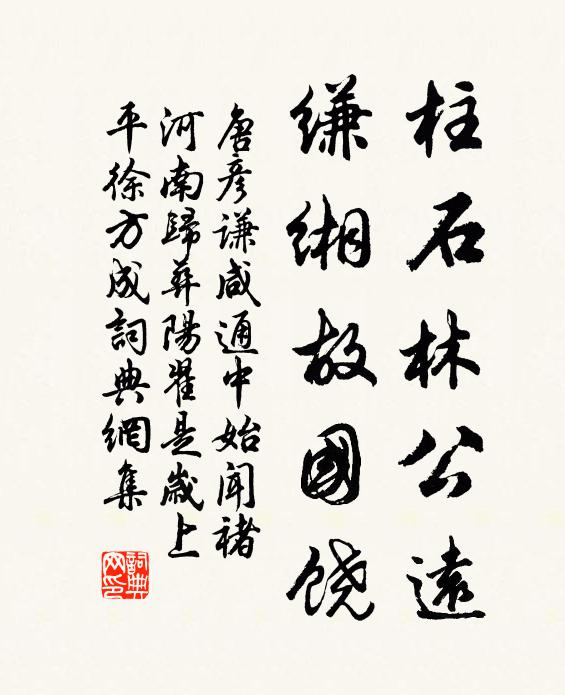 柱石林公遠
縑緗故國饶
唐彦谦咸通中始闻褚
河南歸葬陽翟是歲上
平徐方成詞典網集
詞典网印